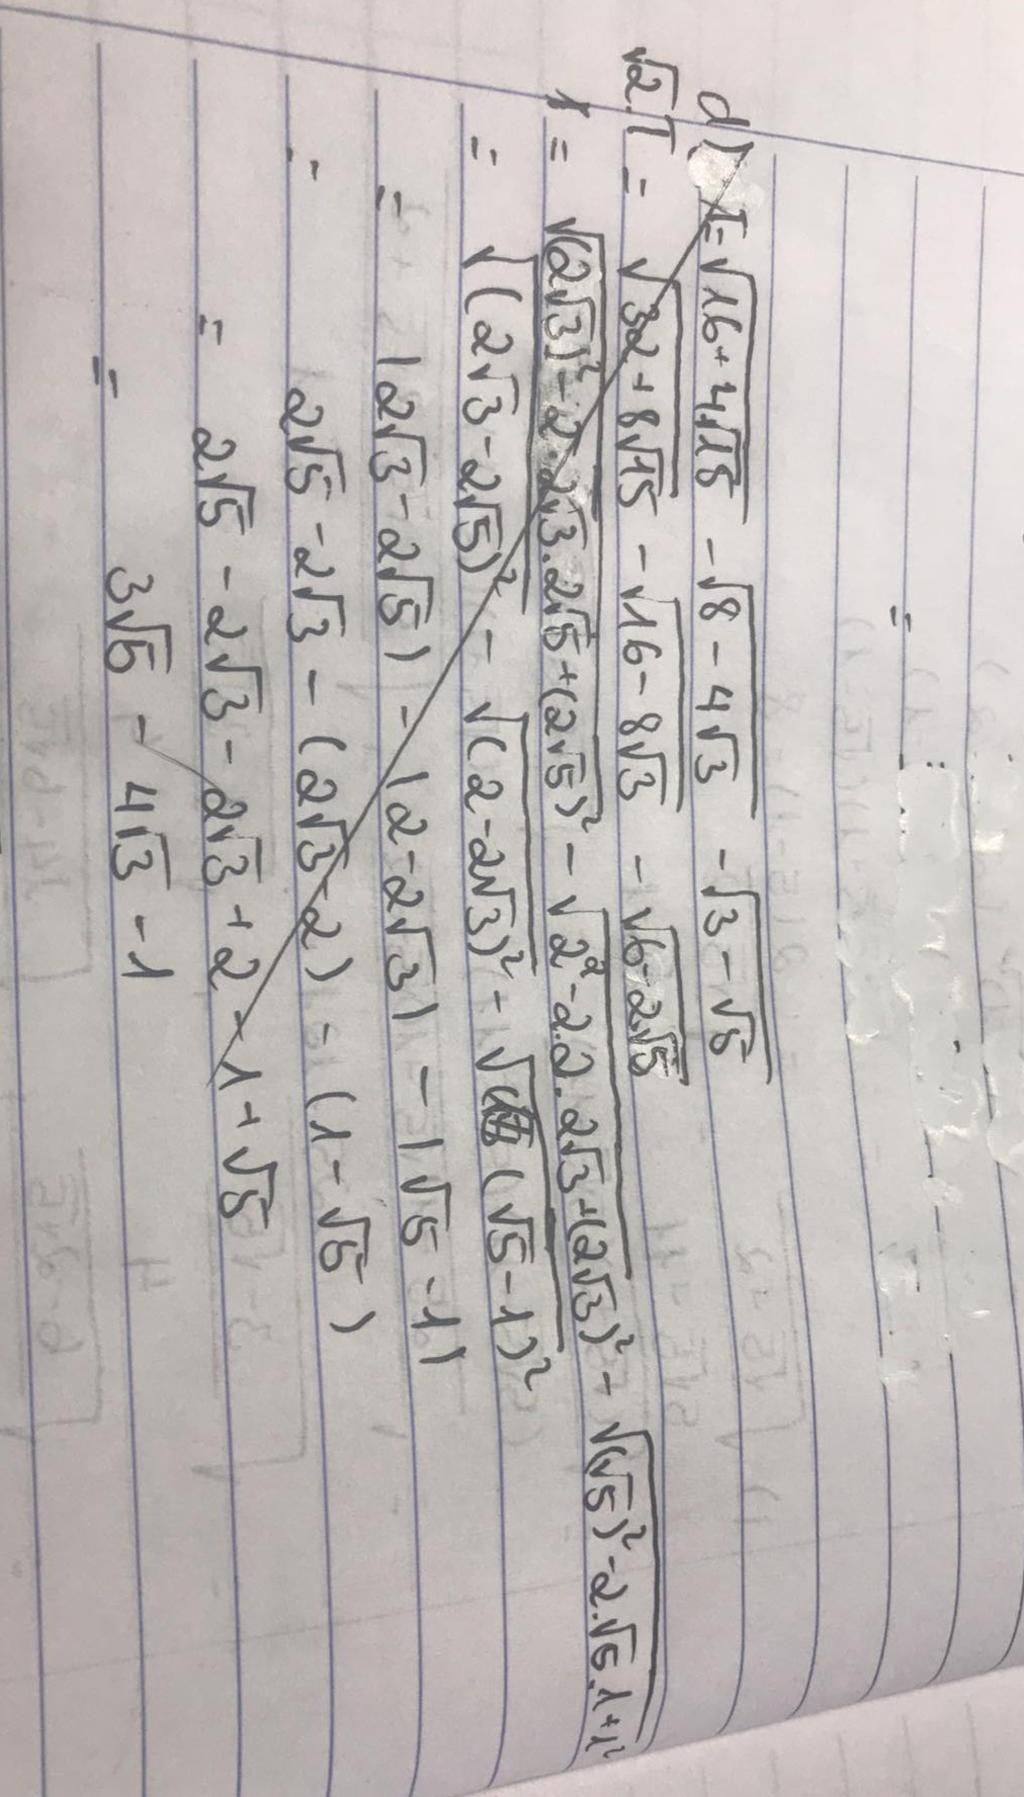 =
d) I = √(16+4√15) - √(8-4√3) - √(3-√5)
√2.I = √(32+8√15) - √(16-8√3) - √(6-2√5)
= √((2√3)²-2.2√3.2√5+(2√5)²) - √(2²-2.2.2√3+(2√3)²) - √((√5)²-2.√5.1+1²)
= √((2√3-2√5)²) - √((2-2√3)²) - √((√5-1)²)
= |2√3-2√5| - |2-2√3| - |√5-1|
= 2√5-2√3-(2√3-2)-(1-√5)
= 2√5-2√3-2√3+2-1+√5
= 3√5-4√3-1